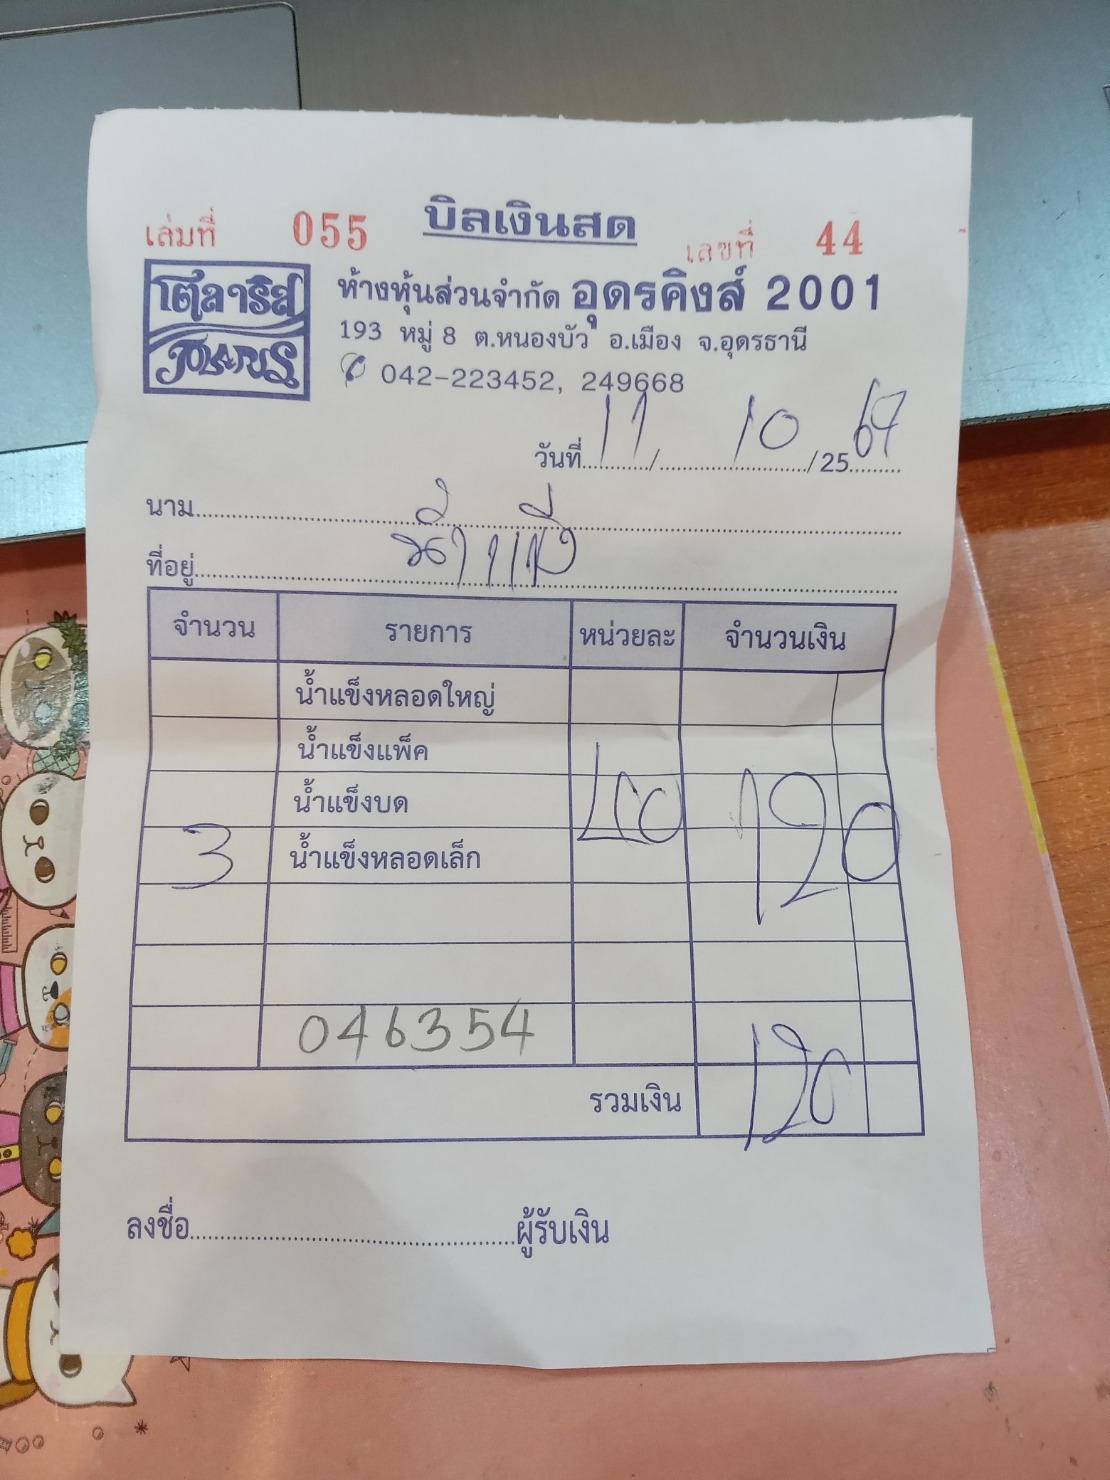 บิลเงินสด
เล่มที่ 055 เลขที่ 44
โตลาริส
POLARIS
ห้างหุ้นส่วนจำกัด อุดรคิงส์ 2001
193 หมู่ 8 ต.หนองบัว อ.เมือง จ.อุดรธานี
042-223452, 249668
วันที่ 11 / 10 /2567
นาม
ที่อยู่
จำนวน รายการ หน่วยละ จำนวนเงิน
น้ำแข็งหลอดใหญ่
น้ำแข็งแพ็ค
น้ำแข็งบด 40 120
3 น้ำแข็งหลอดเล็ก
046354
รวมเงิน 120
ลงชื่อ ผู้รับเงิน